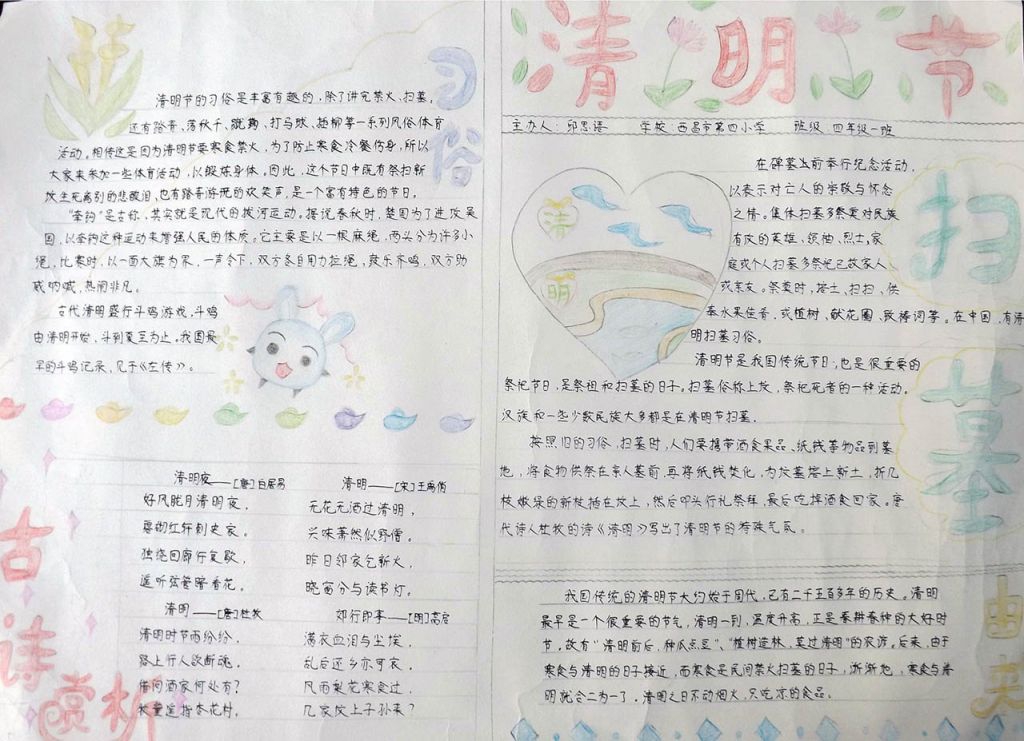 习俗
清明节的习俗是丰富有趣的，除了讲究禁火、扫墓，
还有踏青、荡秋千、蹴鞠、打马球、插柳等一系列风俗体育
活动。相传这是因为清明节要寒食禁火，为了防止寒食冷餐伤身，所以
大家来参加一些体育活动，以锻炼身体。因此，这个节日中既有祭扫新
坟生死离别的悲酸泪，也有踏青游玩的欢笑声，是一个富有特色的节日。
"牵钩"是古称，其实就是现代的拔河运动。据说春秋时，楚国为了进攻吴
国，以牵钩这种运动来增强人民的体质。它主要是以一根麻绳，两头分为许多小
绳，比赛时，以一面大旗为界，一声令下，双方各自用力拉绳，鼓乐齐鸣，双方助
威呐喊，热闹非凡。
古代清明盛行斗鸡游戏，斗鸡
由清明开始，斗到夏至为止。我国最
早的斗鸡记录，见于《左传》。
古诗赏析
清明夜——[唐]白居易
好风胧月清明夜，
碧砌红轩刺史家。
独绕回廊行复歇，
遥听弦管暗看花。
清明——[宋]王禹偁
无花无酒过清明，
兴味萧然似野僧。
昨日邻家乞新火，
晓窗分与读书灯。
清明——[唐]杜牧
清明时节雨纷纷，
路上行人欲断魂。
借问酒家何处有？
牧童遥指杏花村。
郊行即事——[明]高启
满衣血泪与尘埃，
乱后还乡亦可哀。
风雨梨花寒食过，
几家坟上子孙来？
清明节
主办人：邱思语 学校：西昌市第四小学 班级：四年级一班
清
明
扫墓
在碑墓当前举行纪念活动，
以表示对亡人的崇敬与怀念
之情。集体扫墓多祭奠对民族
有攻的英雄、领袖、烈士，家
庭或个人扫墓多祭祀已故家人、
或亲友。祭奠时，培土、扫扫、供
奉水果佳香、或植树、献花圈、致祷词等。在中国，有清
明扫墓习俗。
清明节是我国传统节日，也是很重要的
祭祀节日，是祭祖和扫墓的日子。扫墓俗称上坟，祭祀死者的一种活动。
汉族和一些少数民族大多都是在清明节扫墓。
按照旧的习俗，扫墓时，人们要携带酒食果品、纸钱等物品到墓
地，将食物供祭在亲人墓前，再将纸钱焚化，为坟墓培上新土，折几
枝嫩绿的新枝插在坟上，然后叩头行礼祭拜，最后吃掉酒食回家。唐
代诗人杜牧的诗《清明》写出了清明节的特殊气氛。
由来
我国传统的清明节大约始于周代，已有二千五百多年的历史。清明
最早是一个很重要的节气，清明一到，温度升高，正是春耕春种的大好时
节，故有"清明前后，种瓜点豆"、"植树造林，莫过清明"的农谚。后来，由于
寒食与清明的日子接近，而寒食是民间禁火扫墓的日子，渐渐地，寒食与清
明就合二为一了，清明之日不动烟火，只吃凉的食品。